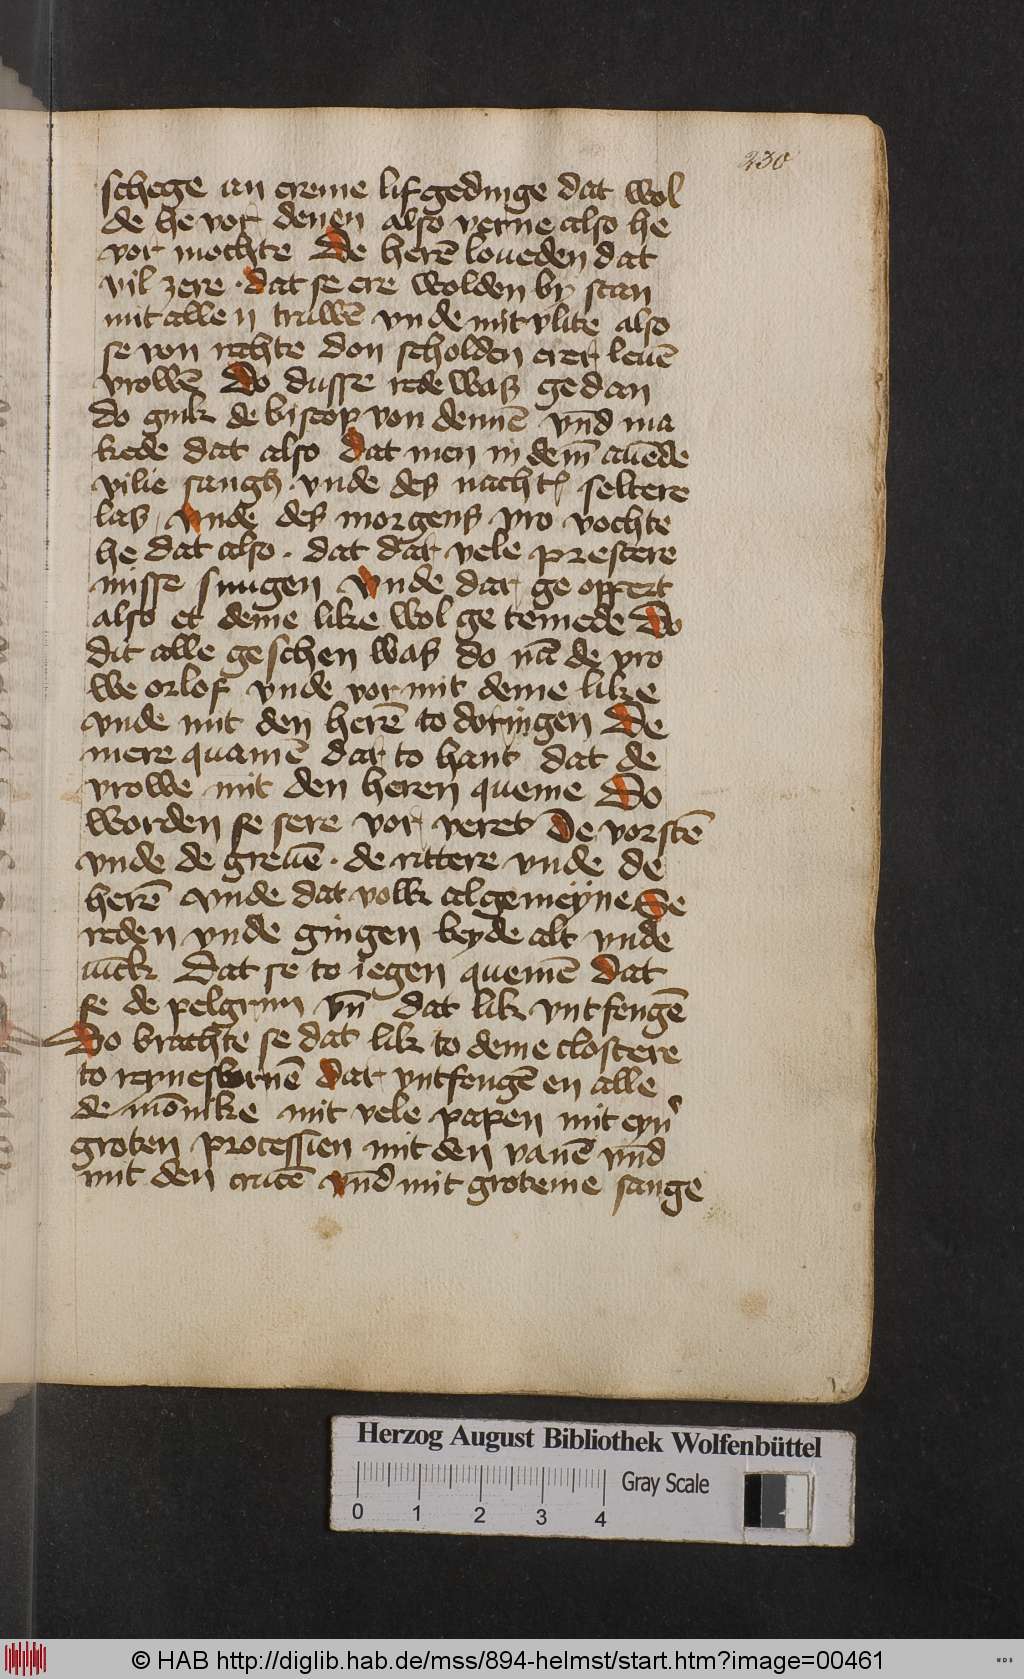 230
schege an creme lifgedinge dat wol
de he vor denen also verne also he
vor mochte De herē loueden dat
vil zere · dat se ere wolden by stan
mit allen truwē vnde mit vlite also
se von rechte don scholden erer leuē
vrowē Do dusse rede was gedan
do gink de biscop von dennē vnd ma
kede dat also dat men in dem auēde
vilie sangh · vnde des nachtes seltere
las vnde des morgens vro vochte
he dat also · dat dar vele prestere
misse sungen vnde dar ge oppert
also et deme like wol ge temede Do
dit alle geschen was do nā de vro
we orlof vnde vor mit deme like
vnde mit den herē to doringen De
mere quamē dar to hant dat de
vrowe mit den heren queme Do
worden se sere vor veret De vorstē
vnde de greuē · de rittere vnde de
herē vnde dat volk algemeyne Se
reden vnde gingen beyde alt vnde
iūck Dat se to iegen quemē dat
se de pelgrim vn̄ dat lik vntfengē
Do brachte se dat lik to deme clostere
to reynesbornē dar vntfengē en alle
de mōnike mit vele papen mit eyn͛
groten processien mit den vanē vnd
mit den crucē vnd mit groteme sange
Herzog August Bibliothek Wolfenbüttel
Gray Scale
0 1 2 3 4
© HAB http://diglib.hab.de/mss/894-helmst/start.htm?image=00461